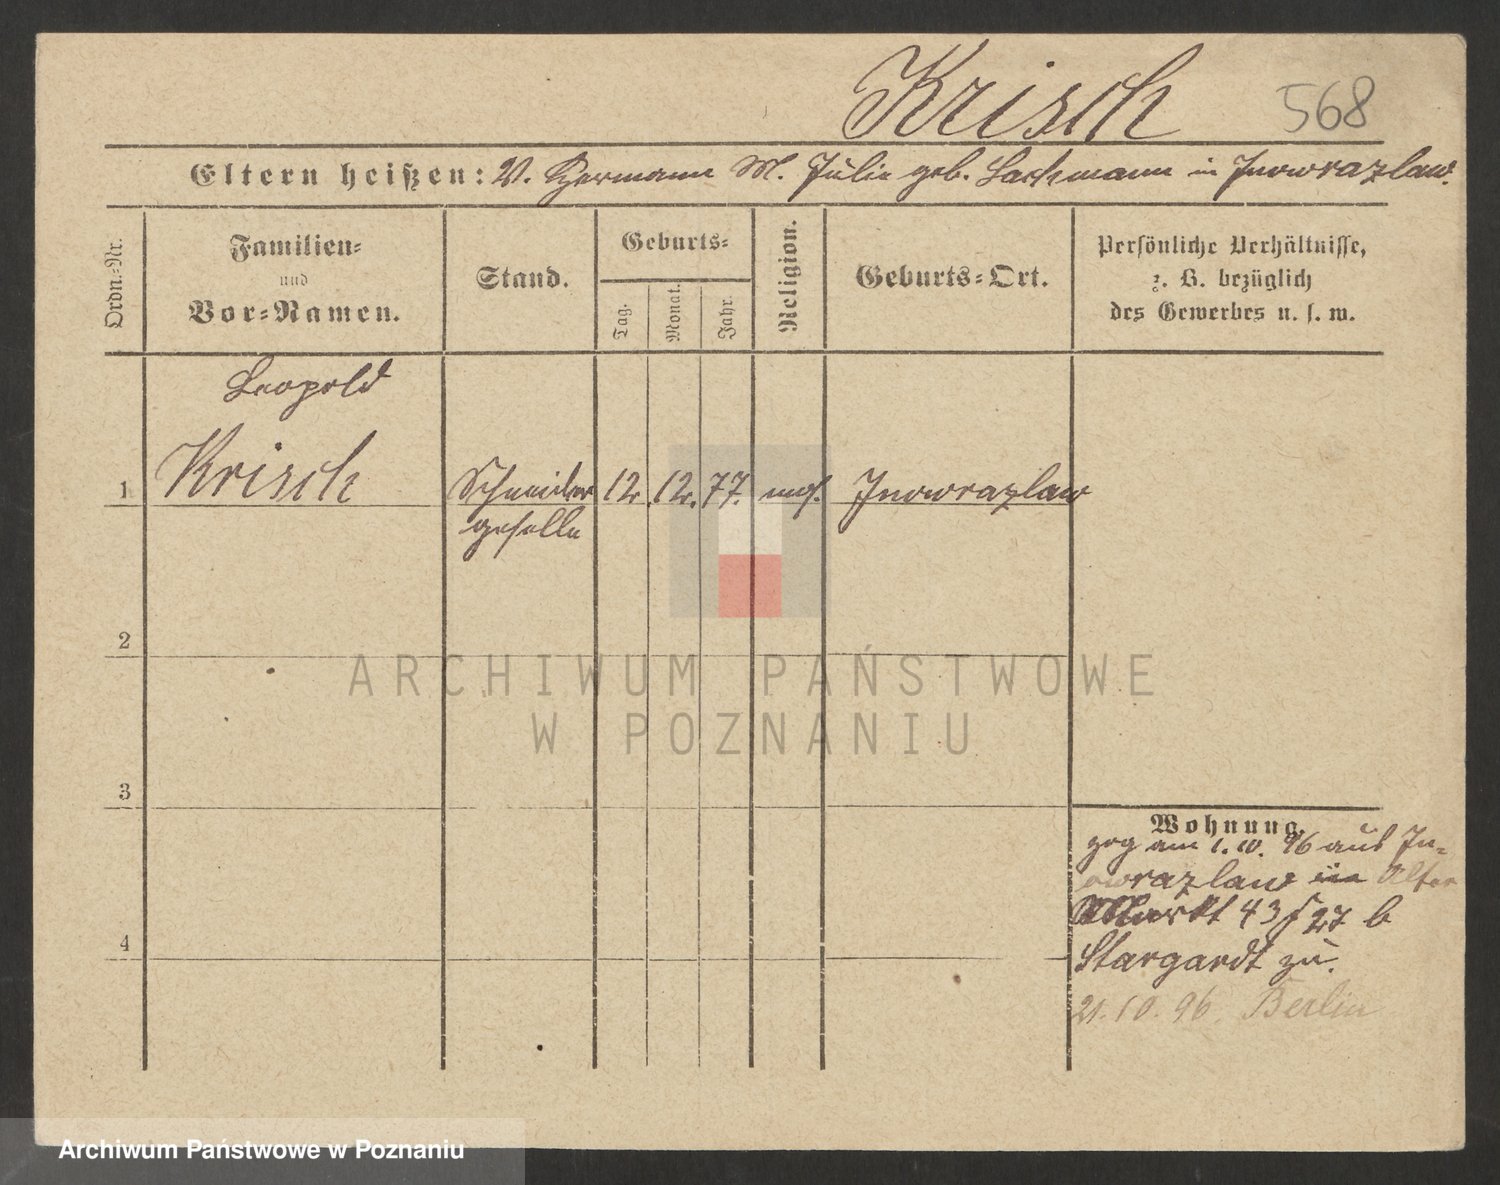 Krisch 568
Eltern heißen: V. Hermann M. Julie geb. Lachmann in Inowrazlaw.
Ordn.-Nr.
Familien-
und
Vor-Namen.
Stand.
Geburts-
Tag.
Monat.
Jahr.
Religion.
Geburts-Ort.
Persönliche Verhältnisse,
z. B. bezüglich
des Gewerbes u. s. w.
Leopold
1 Krisch Schneider 12. 12. 77. mos. Inowrazlaw
geselle
2
3
4
Wohnung.
zog am 1. 10. 96 aus In-
owrazlaw Alter
Markt 43 27 b
Stargardt zu.
21. 10. 96. Berlin
ARCHIWUM PAŃSTWOWE
W POZNANIU
Archiwum Państwowe w Poznaniu